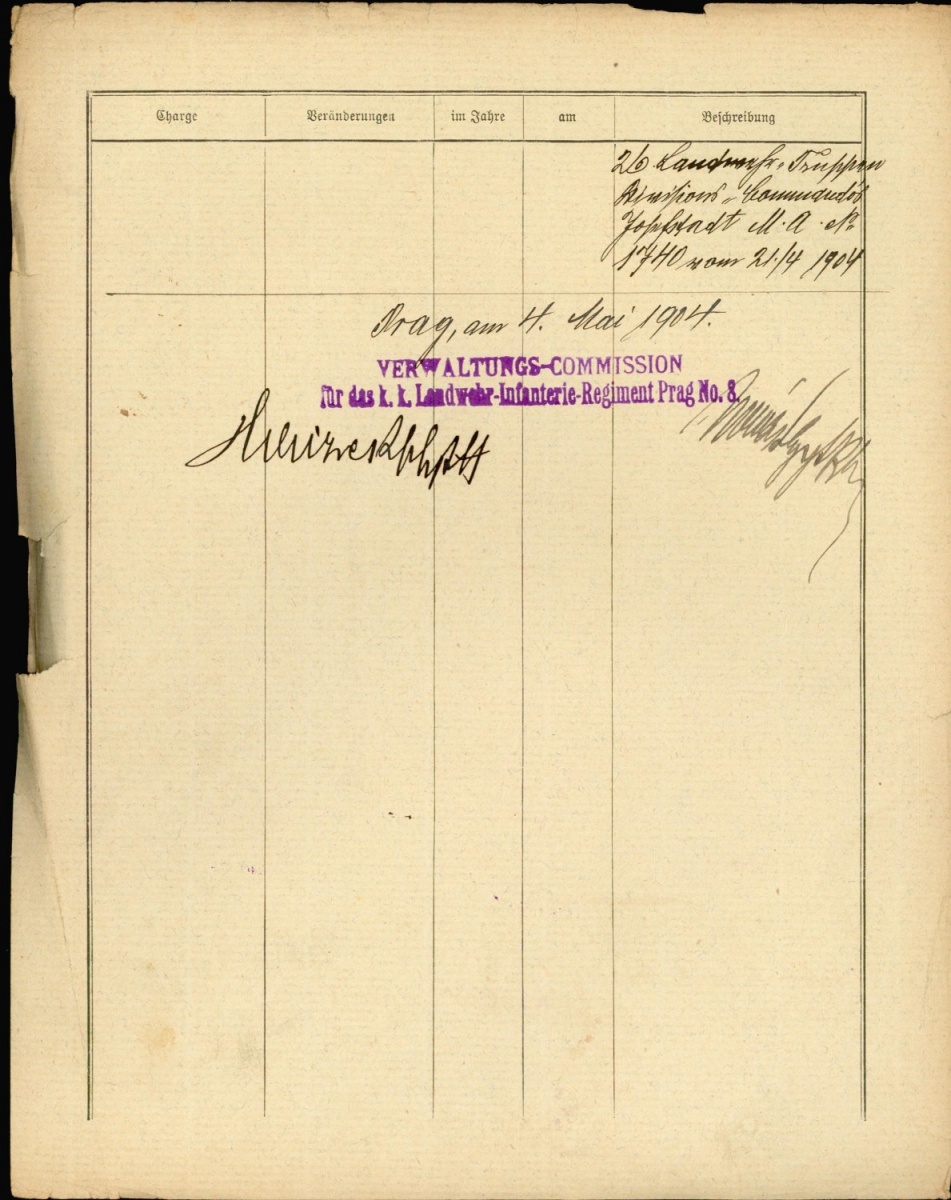 Charge Veränderungen im Jahre am Beschreibung
26. Landwehr-Truppen
Divisions-Commandos
Josefstadt M. A. No
1740 vom 21./4 1904
Prag, am 4. Mai 1904.
VERWALTUNGS-COMMISSION
für das k. k. Landwehr-Infanterie-Regiment Prag No. 8.